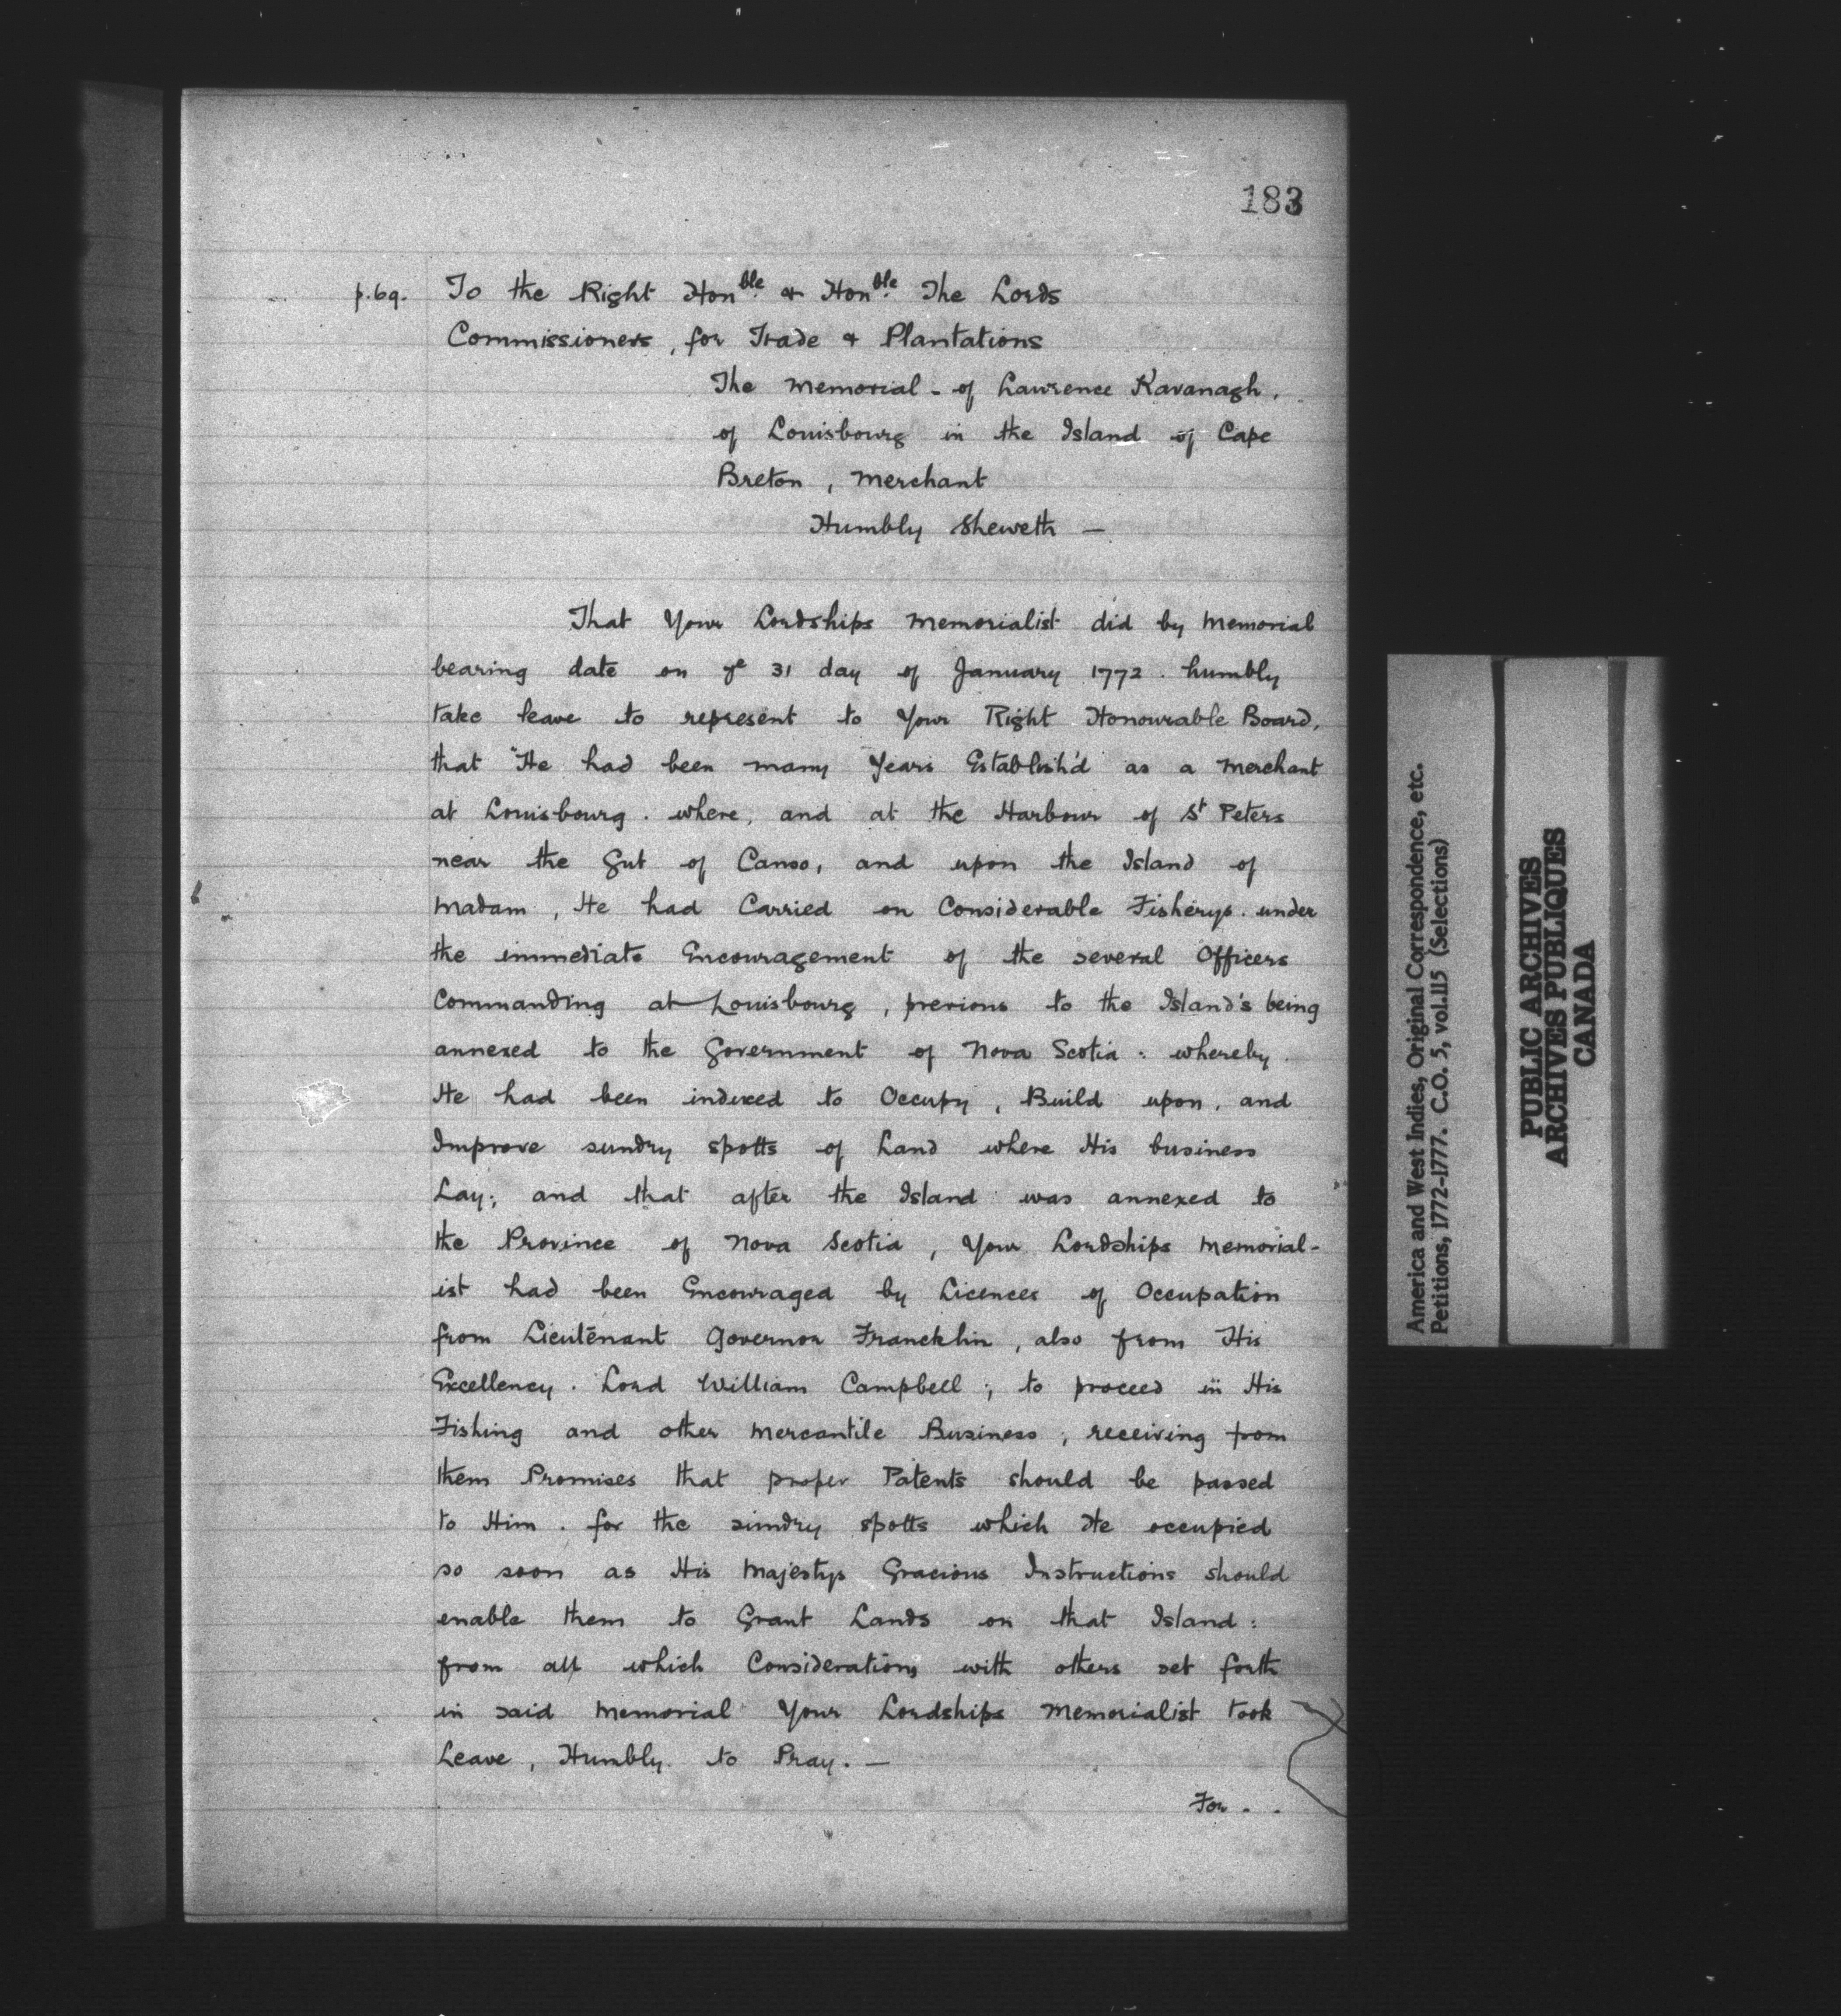 183
p.69. To the Right Honble. & Honble. The Lords
Commissioners, for Trade & Plantations
The Memorial - of Lawrence Kavanagh.
of Louisbourg in the Island of Cape
Breton, Merchant
Humbly Sheweth —
That Your Lordships Memorialist did by Memorial
bearing date on ye 31 day of January 1772. humbly
take leave to represent to Your Right Honourable Board,
that "He had been many Years Establish'd as a Merchant
at Louisbourg. where, and at the Harbour of St Peters
near the Gut of Canso, and upon the Island of
Madam, He had Carried on Considerable Fisherys. under
the immediate Encouragement of the several Officers
Commanding at Louisbourg, previous to the Island's being
annexed to the Government of Nova Scotia: whereby.
He had been induced to Occupy, Build upon, and
Improve sundry spotts of Land where His business
Lay; and that after the Island was annexed to
the Province of Nova Scotia, Your Lordships Memorial-
ist had been Encouraged by Licences of Occupation
from Lieutenant Governor Francklin, also from His
Excellency. Lord William Campbell; to proceed in His
Fishing and other Mercantile Business, receiving from
them Promises that proper Patents should be passed
to Him. for the sundry spotts which He occupied
so soon as His Majestys Gracious Instructions should
enable them to Grant Lands on that Island:
from all which Considerations with others set forth
in said Memorial Your Lordships Memorialist took
Leave, Humbly to Pray. —
For . .
America and West Indies, Original Correspondence, etc.
Petitions, 1772-1777. C.O. 5, vol.115 (Selections)
PUBLIC ARCHIVES
ARCHIVES PUBLIQUES
CANADA